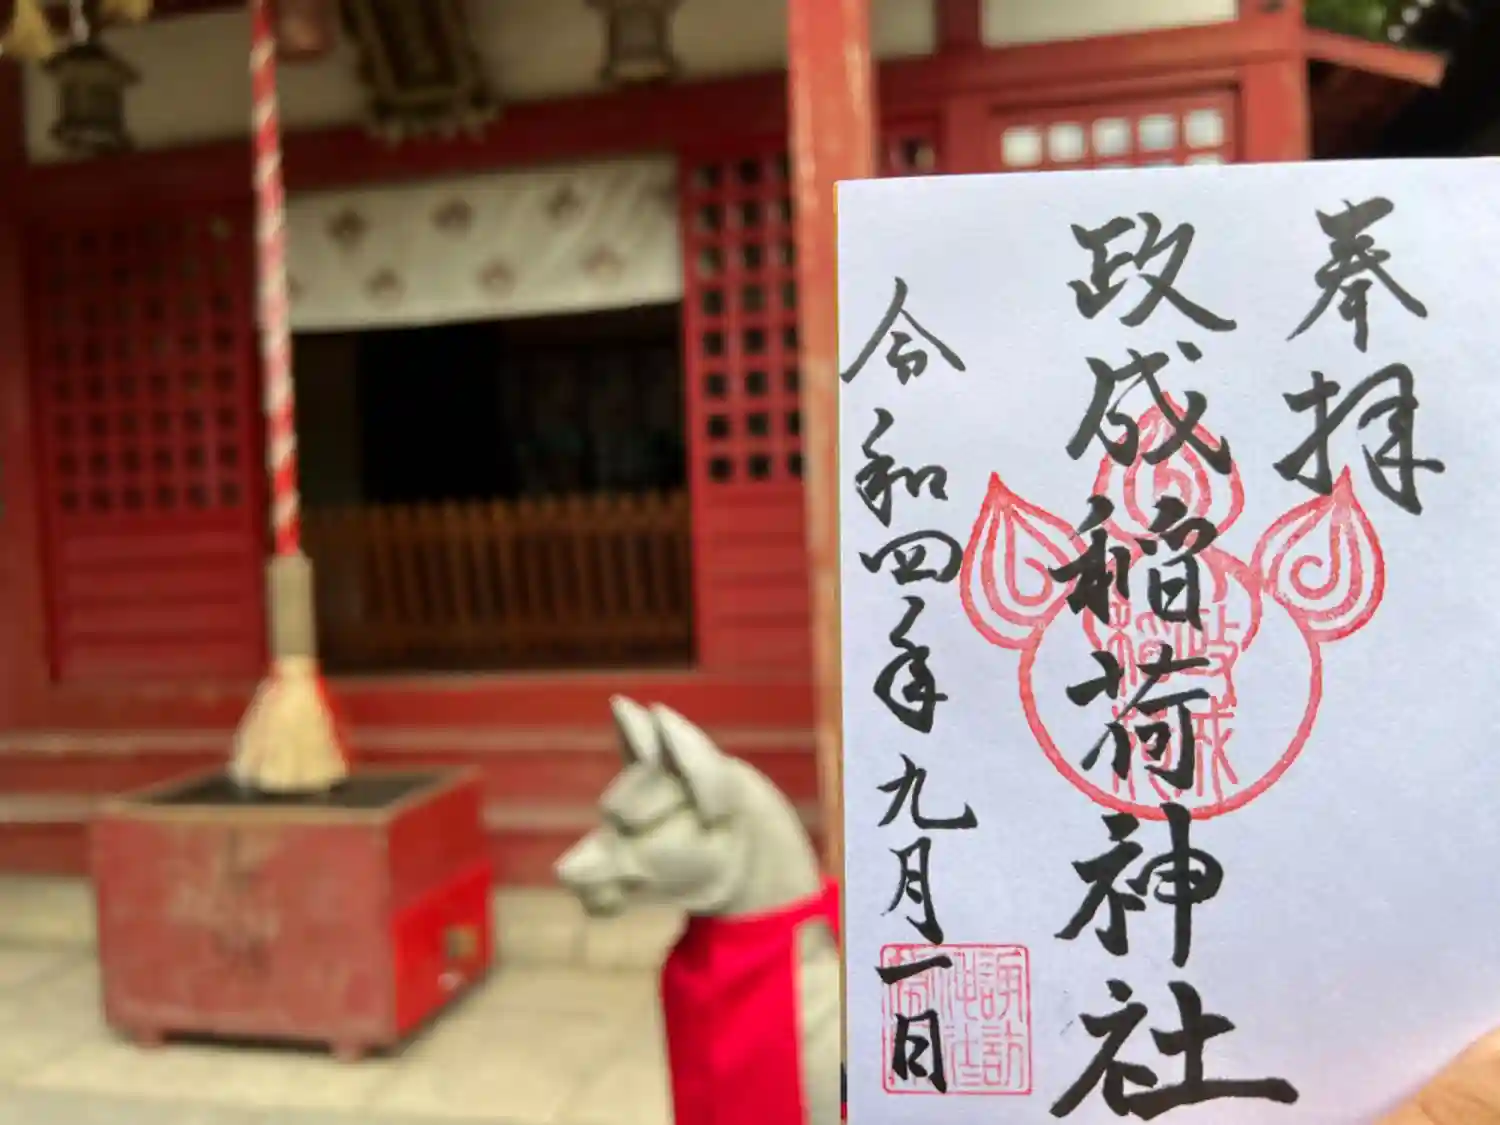 奉拝
政成稲荷神社
令和四年九月一日
政成
稲荷
諏訪